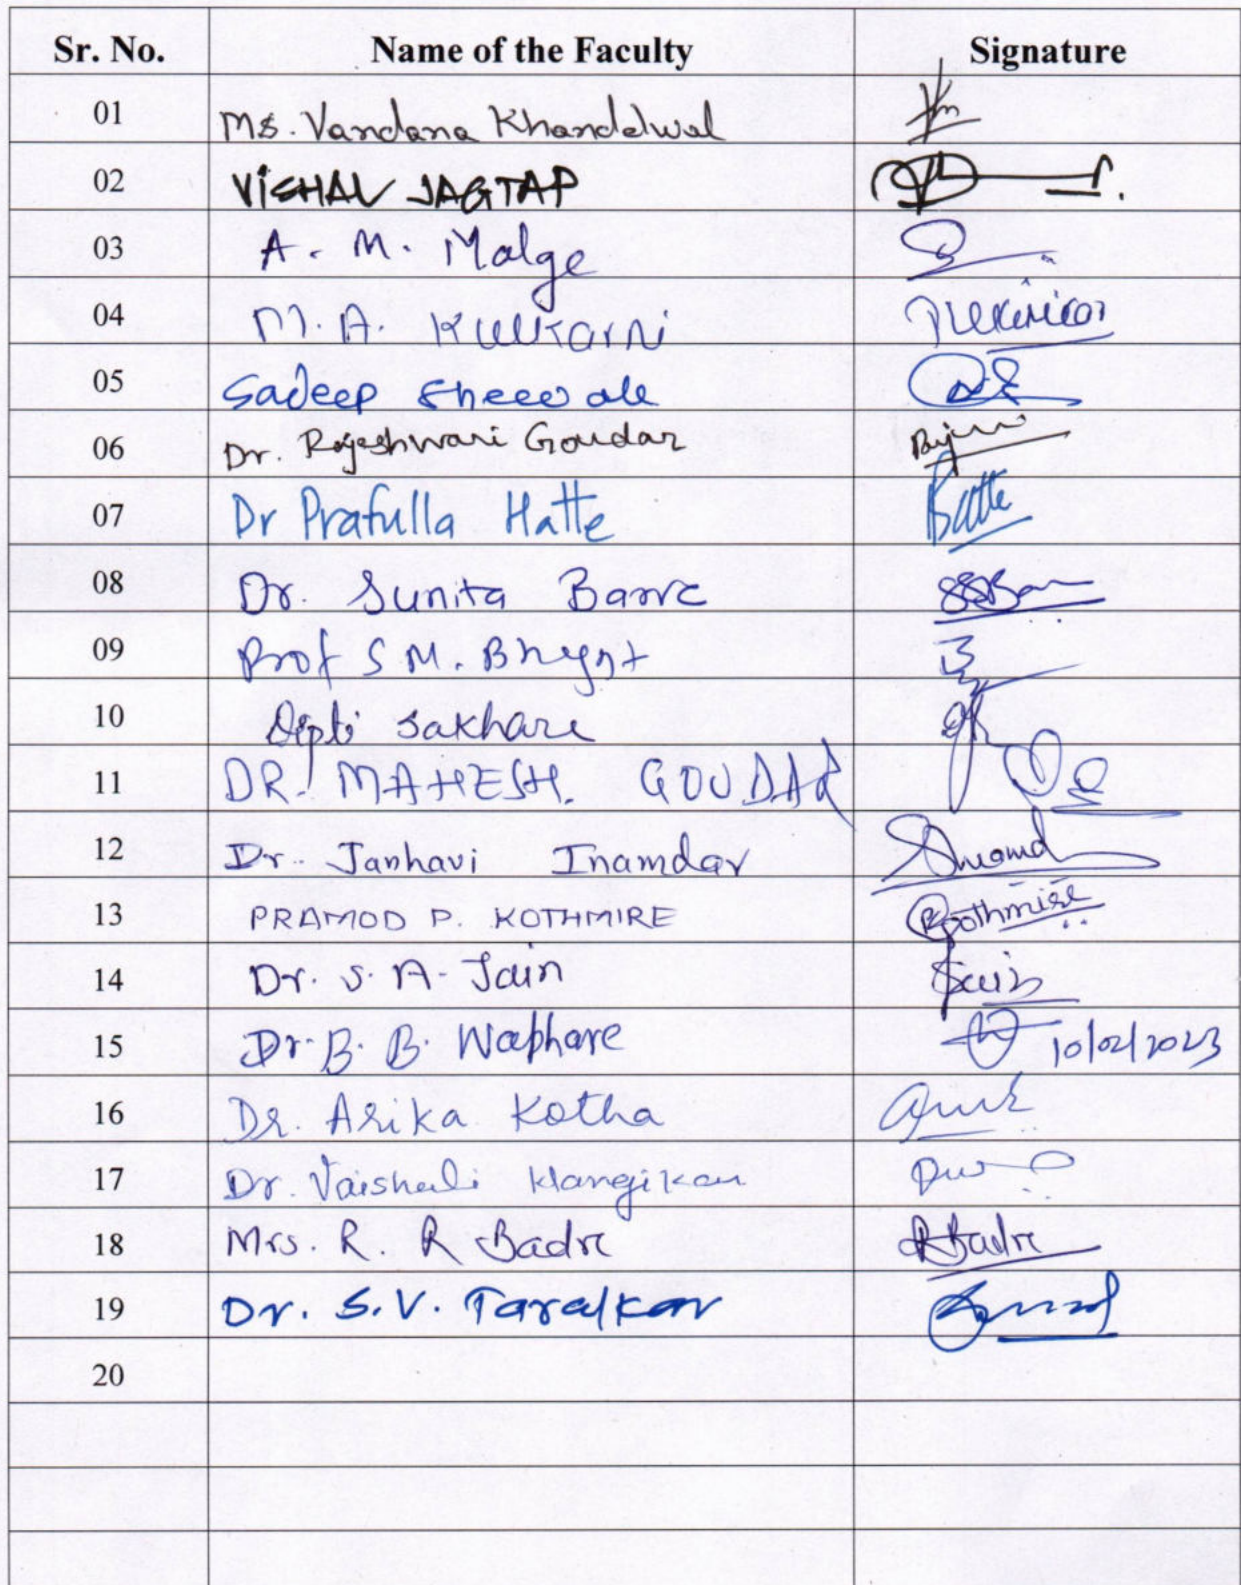 Sr. No. Name of the Faculty Signature
01 Ms. Vandana Khandelwal
02 VISHAL JAGTAP
03 A. M. Malge
04 M. A. Kulkarni
05 Sadeep Sheewale
06 Dr. Rajeshwari Goudar
07 Dr Prafulla Hatte
08 Dr. Sunita Barve
09 Prof S M. Bhagat
10 Dipti Sakhare
11 DR. MAHESH. GOUDAR
12 Dr. Janhavi Inamdar
13 PRAMOD P. KOTHMIRE Pkothmire
14 Dr. S. A. Jain Jain
15 Dr. B. B. Waphare 10/02/2023
16 Dr. Arika Kotha
17 Dr. Vaishali Hangikar
18 Mrs. R. R Badre RBadre
19 Dr. S. V. Taralkar
20